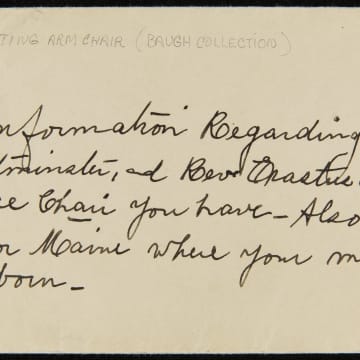 TING ARM CHAIR (BAUGH COLLECTION)
nformation Regarding
dminster, and Rev Erastus
ce Chair you have - Also
or Maine where your m
born -